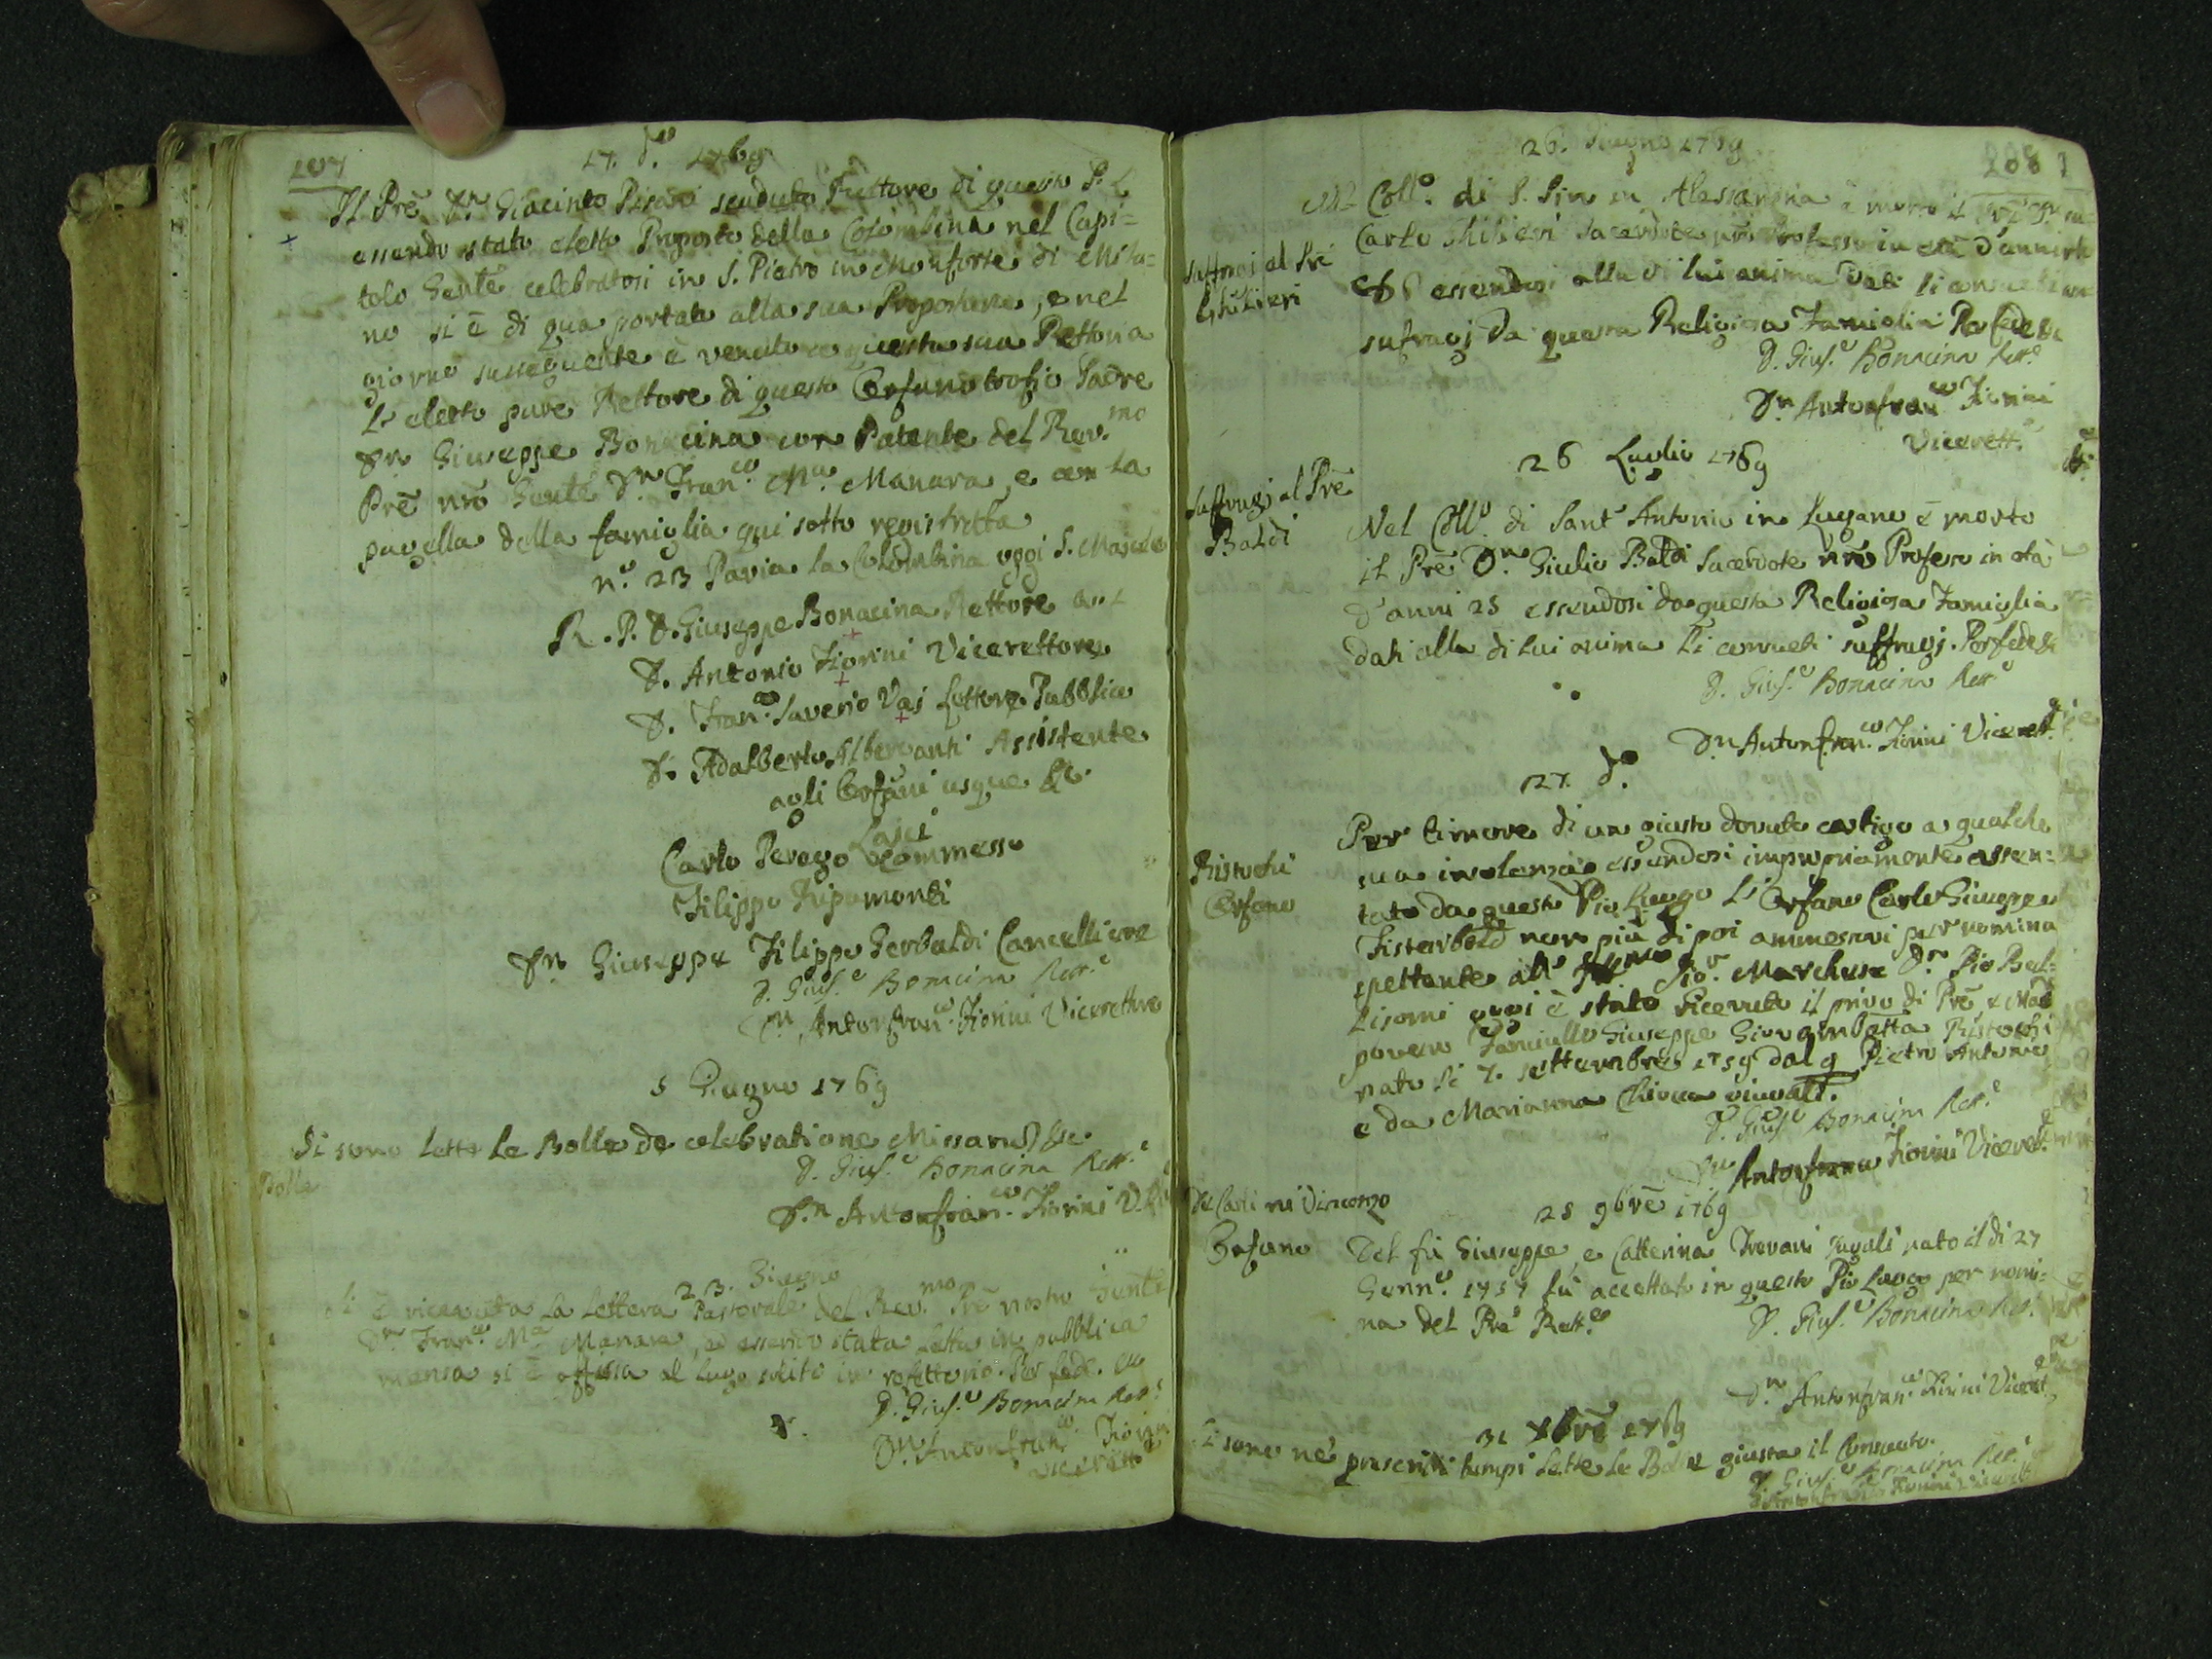 207
17. do 1769
Il Prê Dn Giacinto Pisani scaduto Rettore di questo P. L.
essendo stato eletto Proposto della Colombina nel Capi=
tolo Gente celebratosi in S. Pietro in Monforte di Mila=
no si è di qua portato alla sua Propositura, e nel
giorno susseguente è venuto a questa sua Rettoria
l'eletto pure Rettore di questo Orfanotrofio Padre
Dn Giuseppe Bonacina con Patente del Rev.mo
Prê nrô Gente Dn Fran.co Ma Manara, e con la
pagella della famiglia qui sotto registratta
n.o 23 Pavia la Colombina oggi S. Maiolo
R. P. D. Giuseppe Bonacina Rettore
D. Antonio Fiorini Vicerettore
D. Fran.co Saverio Vai Lettore Pubblico
D. Adalberto Alberganti Assistente
agli Orfani usque &c.
Laici
Carlo Perego Commesso
Filippo Ripamonti
Dn Giuseppe Filippo Gerbaldi Cancelliere
D. Gius.e Bonacina Rett.e
Dn Antonfran.co Fiorini Vicerettore
5 Giugno 1769
Si sono lette le Bolle de celebratione Missarum &c.
Bolle
D. Gius.e Bonacina Rett.e
D.n Antonfran.co Fiorini V.
23. Giugno
Si è ricevuta la Lettera Pastorale del Rev.mo Prê nostro Gente
Dn Fran.co Ma Manara, ed essendo stata letta in pubblica
mensa si è affissa al luogo solito in refettorio. Per fede.
D. Gius.e Bonacina Rett.e
Dn Antonfran.co Fiorini
Vicerett.e
208
26. Giugno 1769
Nel Coll.o di S. Siro in Alessandria è morto il Prê Dn
Carlo Ghilieri Sacerdote nrô Professo in età d'anni
suffragi al Prê
Ghilieri
essendosi alla di lui anima dati li consueti
sufragj da questa Religiosa Famiglia Per fede
D. Gius.e Bonacina Ret.e
Dn Antonfran.co Fiorini
Vicerett.e
26 Luglio 1769
Suffragj al Prê
Baldi
Nel Coll.o di Sant' Antonio in Lugano è morto
il Prê D.n Giulio Baldi Sacerdote nrô Professo in età
d'anni 25 essendosi da questa Religiosa Famiglia
dati alla di lui anima li consueti suffragj. Per fede
D. Gius.e Bonacina Rett.e
Dn Antonfran.co Fiorini Vicerett.e
27. do
Per timore di un giusto dovuto castigo a qualche
sua insolenza essendosi impropriamente assen=
Ristochi
Orfano
tato da questo Pio Luogo l'Orfano Carlo Giuseppe
non più di poi ammessovi per nomina
spettante all' Ill.mo Sig.r Marchese Dn Pio Bel=
lisomi oggi è stato ricevuto il privo di Prê e Mad
povero Fanciullo Giuseppe Giovanbatta Ristochi
nato li 7. settembre 1759 dal q Pietro Antonio
e da Marianna Chiocca giugali.
D. Gius.e Bonacina Rett.e
Dn Antonfranco Fiorini Vicerett.e
De Carli ni Vincenzo
Orfano
25 9bre 1769
Del fù Giuseppe, e Catterina Trovani jugali nato il dì 27
Genn.o 1757 fù accettato in questo Pio Luogo per nomi=
na del Prê Rett.e
D. Gius.e Bonacina Ret.e
D.n Antonfran.co Fiorini Vicerett.e
31 Xbre 1769
Si sono ne' prescritti tempi lette le Bolle giusta il Consueto.
D. Gius.e Bonacina Ret.e
D. Antonfranco Fiorini Vicerett.e